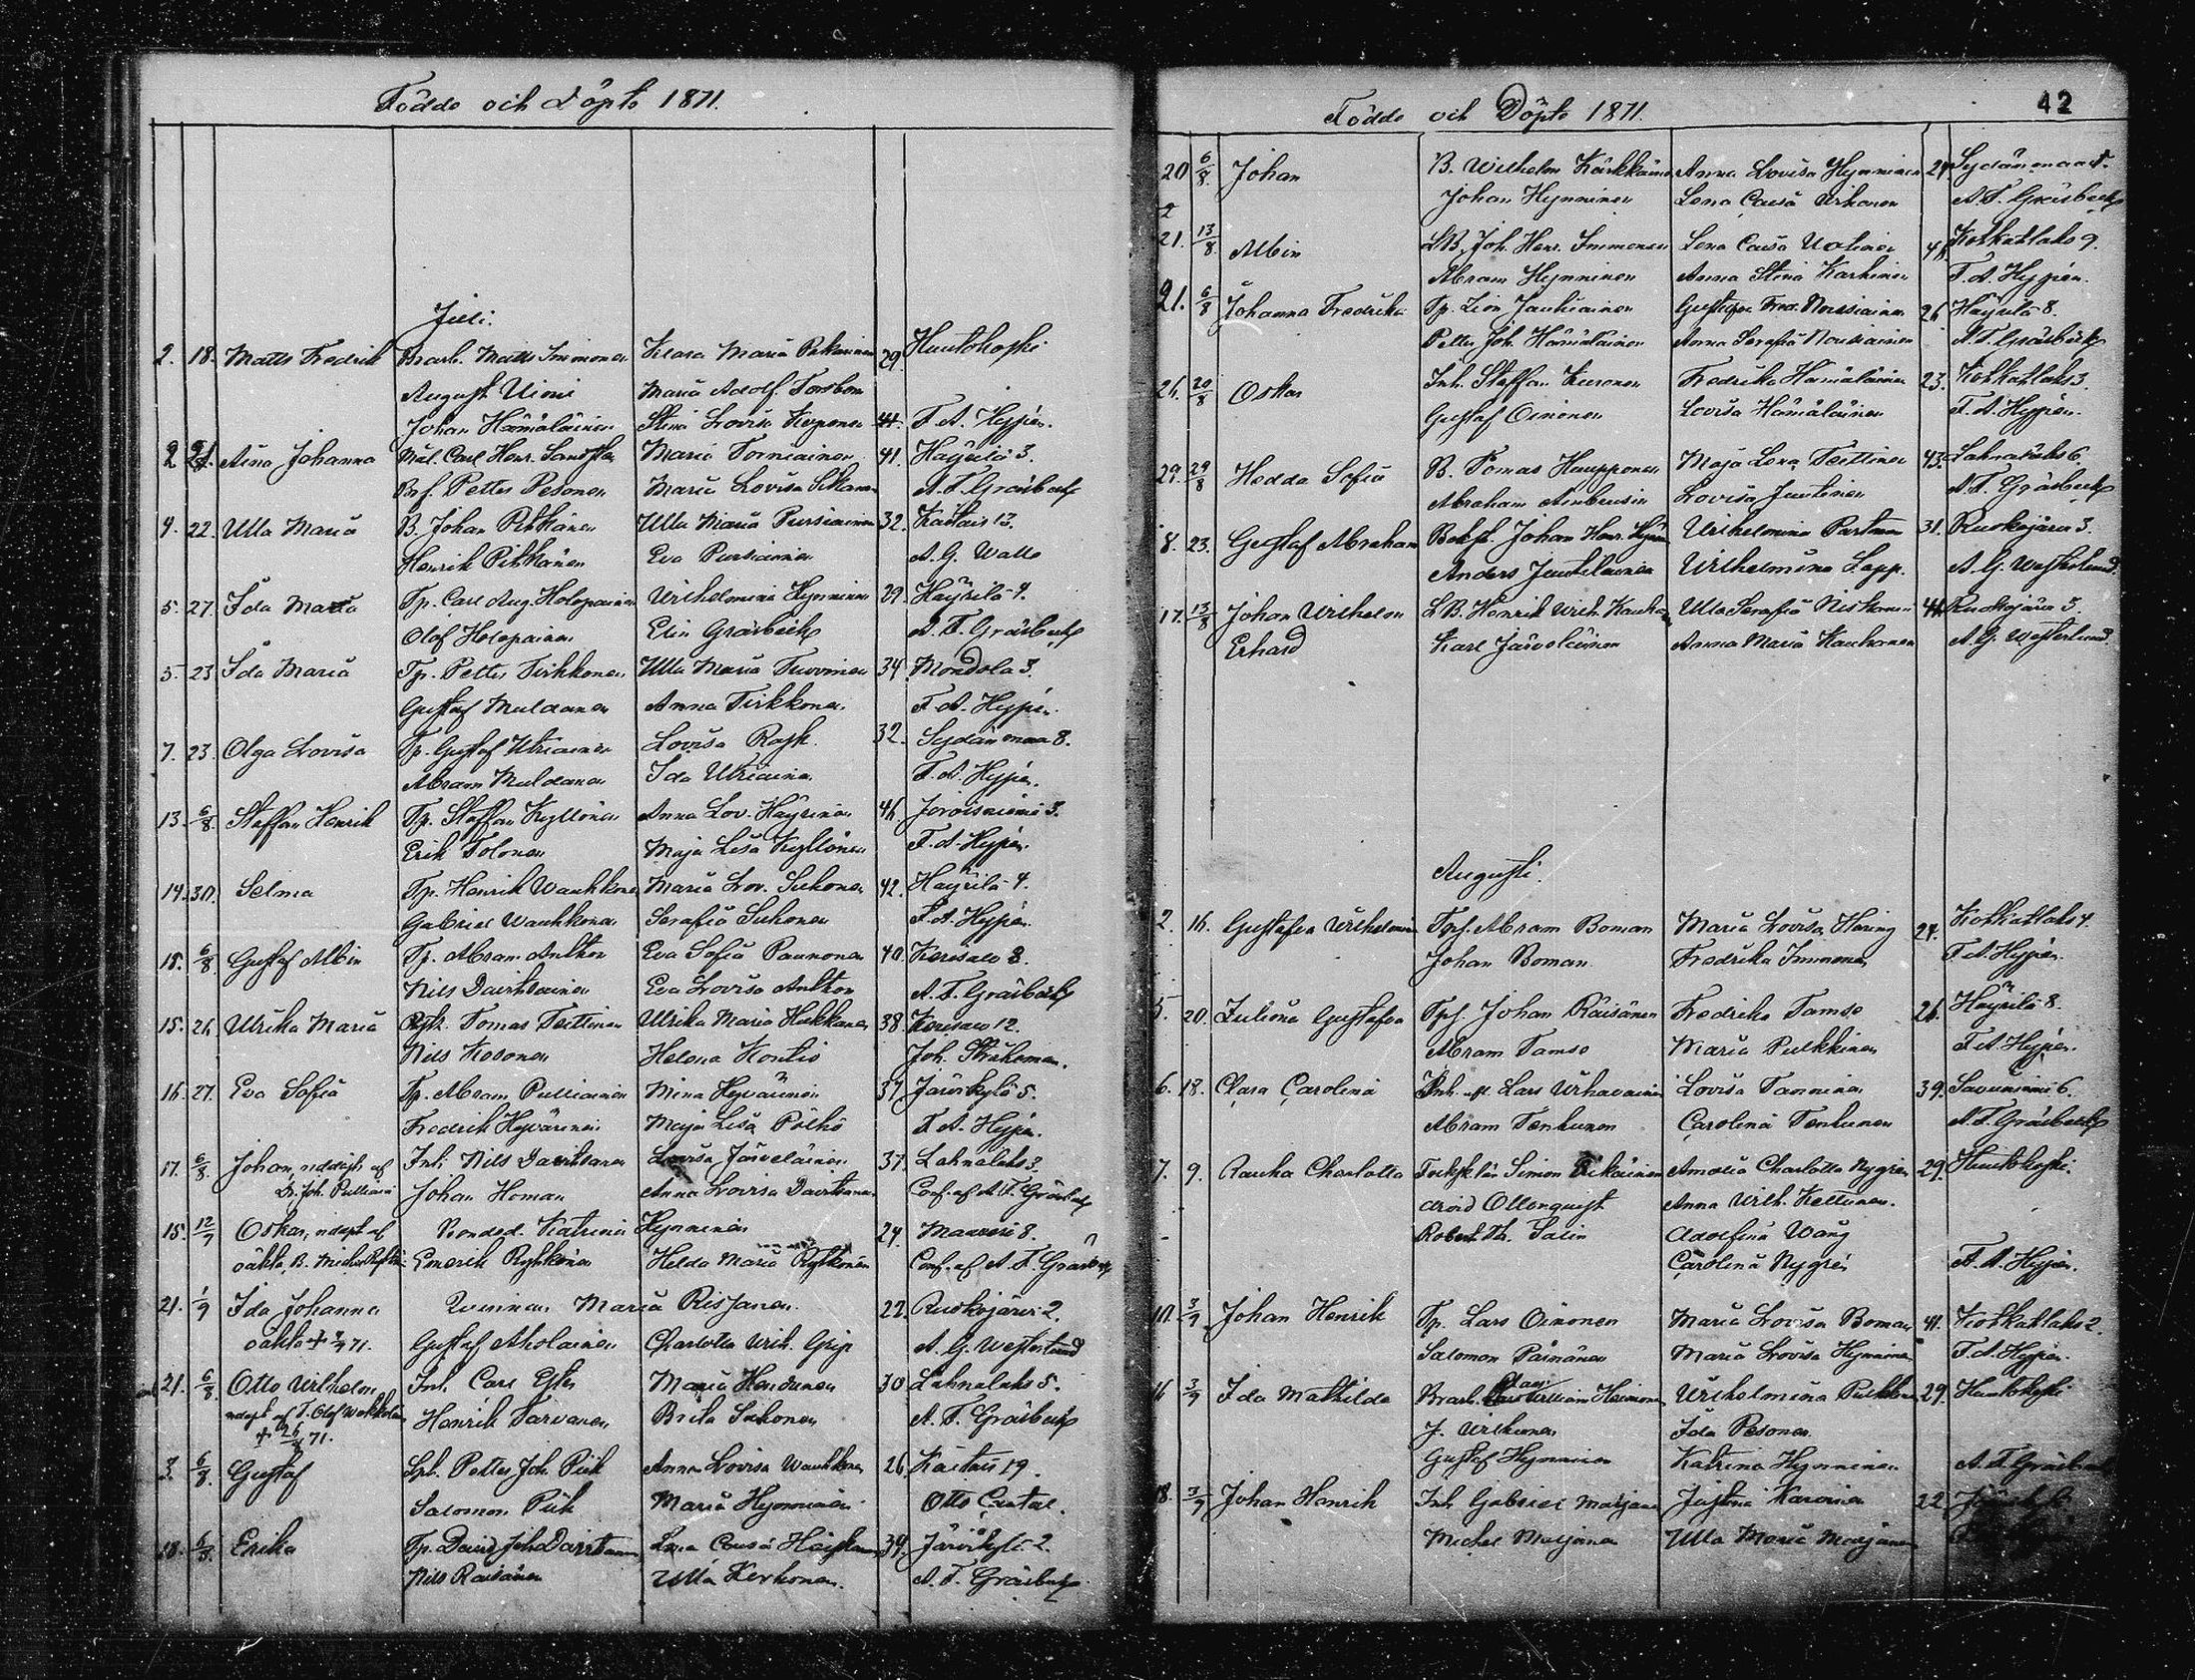 Födde och Döpte 1871.
Juli.
2. 18. Matts Fredrik Brarb. Matts Immonen Klara Maria Pekkarinen 29. Huutokoski
August Uimi Maria Adolf. Forsbom
Johan Hämäläinen Stina Lovisa Kosonen F. A. Hypén.
2 Aina Johanna Mål. Carl Henr. Maria Torniainen 41. Häyrilä 3.
Petter Pesonen Maria Lovisa A. F. Gräsbeck
4. 22. Ulla Maria B. Johan Pitkänen Ulla Maria Pursiainen 32. Kaitais 13.
Henrik Pitkänen Eva Pursiainen A. G. Walle
5. 27. Ida Maria Tp. Carl Aug. Holopainen Wilhelmina Hynninen 29. Häyrilä 4.
Olof Holopainen Elin Gräsbeck A. F. Gräsbeck
5. 23 Ida Maria Tp. Petter Tirkkonen Ulla Maria Tuovinen 34. Mondola 3.
Gustaf Muldanen Anna Tirkkonen F. A. Hypén.
7. 23. Olga Lovisa Tp. Gustaf Utriainen Lovisa Rask 32. Sydänmaa 8.
Abram Muldanen Ida Utriainen F. A. Hypén.
13. 6/8. Staffan Henrik Tp. Staffan Kyllönen Anna Lov. Häyrinen 46. Joroisniemi 3.
Erik Tolonen Maja Lisa Kyllönen F. A. Hypén.
14. 30. Selma Tp. Henrik Wauhkonen Maria Lov. Suhonen 42. Häyrilä 4.
Gabriel Wauhkonen Serafia Suhonen F. A. Hypén.
15. 6/8 Gustaf Albin Tp. Abram Anthon Eva Sofia Paunonen 40. Kerisalo 8.
Nils Davitsainen Eva Lovisa Anthon A. F. Gräsbeck
15. 26. Ulrika Maria Tomas Teittinen Ulrika Maria Hukkanen 38. Kerisalo 12.
Nils Kosonen Helena Kontio Joh. Stråhlman.
16. 27. Eva Sofia Tp. Abram Pulliainen Mina Hyvärinen 37 Järvikylä 5.
Fredrik Hyvärinen Maja Lisa Pölhö F. A. Hypén.
17. 6/8. Johan, nöddöpt af Inh. Nils Davitsainen Lovisa Järveläinen 37. Lahnalaks 3.
Joh. Pulliainen Johan Homan Anna Lovisa Davitsainen Conf. af A. F. Gräsbeck
15. 12/7 Oskar, nödöpt af Katrina Hynninen 24. Maavesi 8.
oäkta, B. Emerik Rytkönen Helda Maria Rytkönen Conf. af A. F. Gräsbeck
21. 1/9 Ida Johanna Qvinnan Maria Rissanen. 22. Ruokojärvi 2.
oäkta Gustaf Aholainen Charlotta Wilh. Grip A. G. Westerlund
21. 6/8. Otto Wilhelm Inh. Carl Maria Hendunen 30 Lahnalaks 5.
nödöpt af T. Olof Henrik Tarvanen Brita Suhonen A. F. Gräsbeck
71.
3. 6/8. Gustaf Petter Joh. Piik Anna Lovisa Wauhkonen 26 Kaitais 19.
Salomon Piik Maria Hynninen Otto Cantal.
18. 6/8. Erika Tp. David Joh. Davitsainen Lena Caisa 34. Järvikylä 2.
Nils Räisänen Ulla Kerkonen. A. F. Gräsbeck
Födde och Döpte 1871.
42
20 6/8. Johan B. Wilhelm Kärkkäinen Anna Lovisa Hynninen 24. Sydänmaa
Johan Hynninen Lena Caisa A. F. Gräsbeck
21. 13/8. Albin LB. Joh. Henr. Immonen Lena Caisa Uotinen Kotkatlaks 9.
Abram Hynninen Anna Stina Karhinen F. A. Hypén.
21. 6/8 Johanna Fredrika Tp. Lion Jauhiainen Gustafva Fred. Nousiainen 26 Häyrilä 8.
Petter Joh. Hämäläinen Anna Serafia Nousiainen A. F. Gräsbeck
20/8 Oskar Inh. Staffan Kuronen Fredrika Hämäläinen 23. Kotkatlaks 3.
Gustaf Oinonen Lovisa Hämäläinen F. A. Hypén.
29. 29/8 Hedda Sofia B. Tomas Haupponen Maja Lena Teittinen 43. Lahnalaks 6.
Abraham Ambrusin Lovisa Juutinen A. F. Gräsbeck
8. 23. Gustaf Abraham Johan Henr. Wilhelmina Partanen 31. Ruokojärvi 3.
Anders Juutilainen Wilhelmina Lapp. A. G. Westerlund.
17. 13/8 Johan Wilhelm LB. Henrik Wilh. Ulla Serafia Niskanen Ruokojärvi 5.
Erhard Karl Järveläinen Anna Maria Kauhanen A. G. Westerlund.
Augusti.
2. 16. Gustafva Wilhelmina Abram Boman Maria Lovisa Häring 24. Kotkatlaks 4.
Johan Boman Fredrika Immonen F. A. Hypén.
5. 20. Juliana Gustafva Johan Räisänen Fredrika Tamse 26. Häyrilä 8.
Abram Tamse Maria Pulkkinen F. A. Hypén.
6. 18. Clara Carolina Lars Lovisa Tanninen 39. Savuniemi 6.
Abram Tenhunen Carolina Tenhunen A. F. Gräsbeck
7. 9. Rauha Charlotta Simon Amalia Charlotta Nygrén 29. Huutokoski.
Arvid Ollonqvist Anna Wilh. Kettunen.
Robert Th. Salin Adolfina Wång
Carolina Nygrén F. A. Hypén.
10. 3/9 Johan Henrik Tp. Lars Oinonen Maria Lovisa Boman 41. Kotkatlaks 2.
Salomon Päivänen Maria Lovisa Hynninen F. A. Hypén.
16 3/9 Ida Mathilda Wilhelmina Pulkkinen 29. Huutokoski
J. Ida Pesonen
Gustaf Hynninen Katrina Hynninen A. F. Gräsbeck
18. 3/9 Johan Henrik Inh. Gabriel Marjanen Justina Karvinen 22
Michel Marjanen Ulla Maria Marjanen